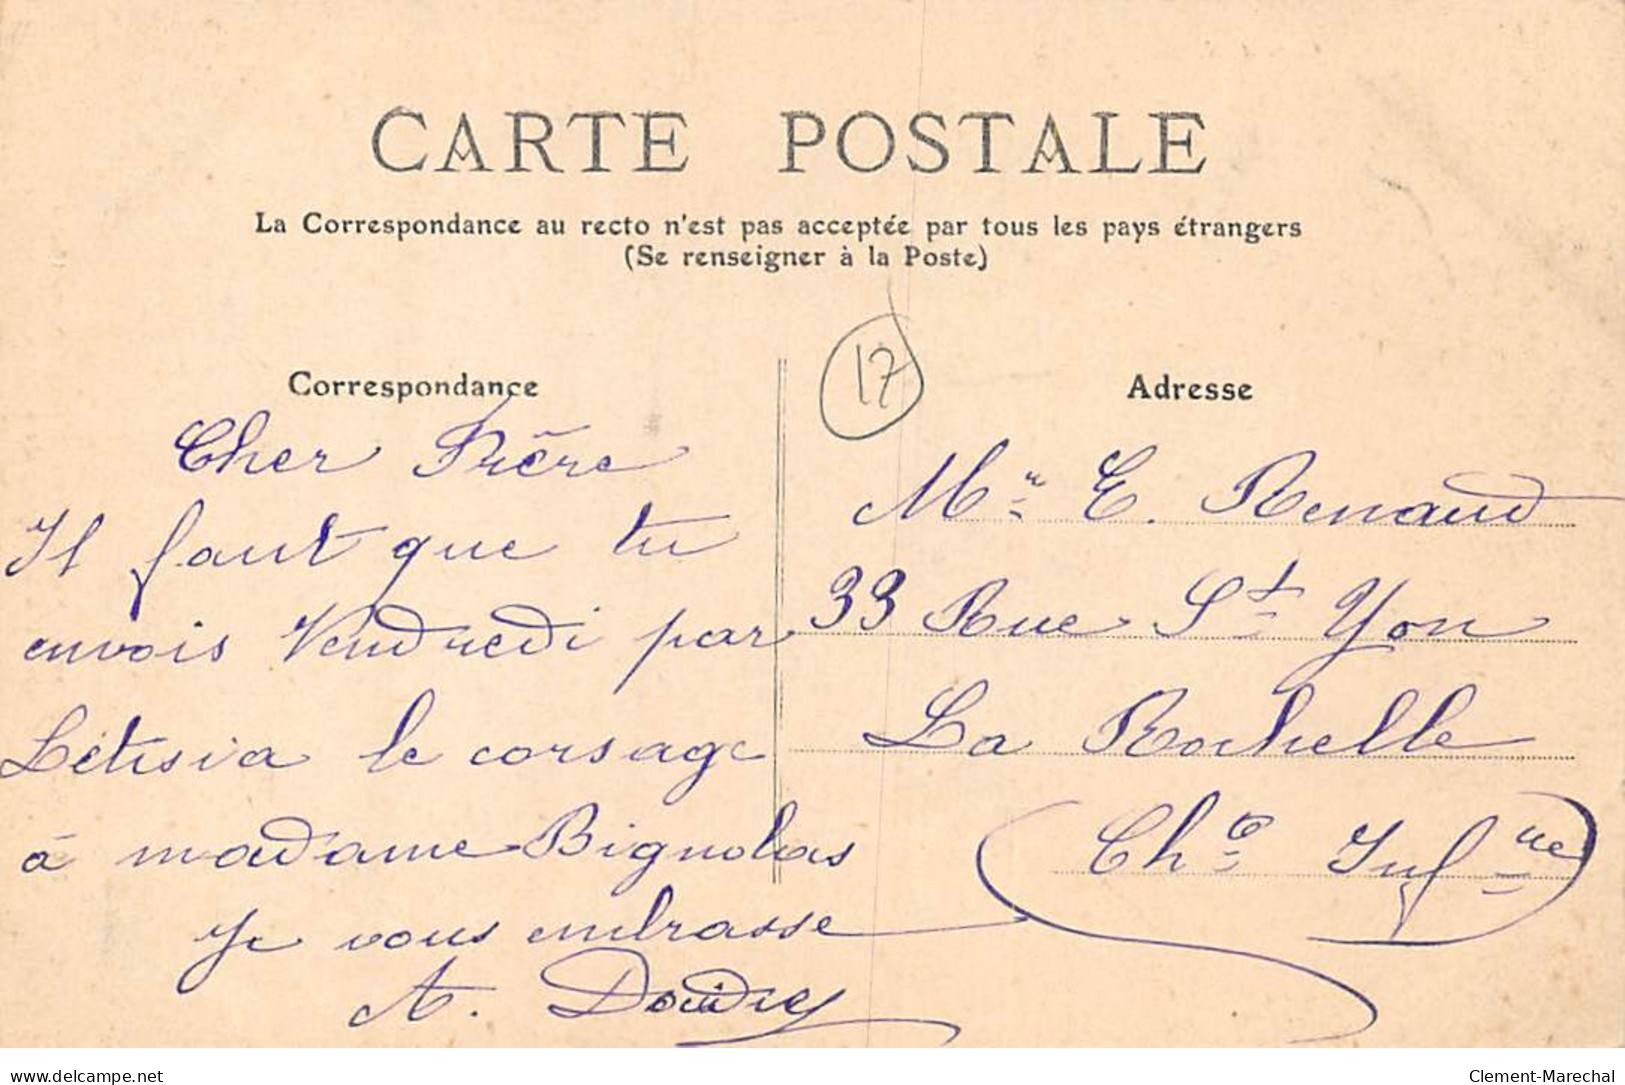 CARTE POSTALE
La Correspondance au recto n'est pas acceptée par tous les pays étrangers
(Se renseigner à la Poste)
17
Correspondance
Cher Frère
Il faut que tu
envois Vendredi par
Létisia le corsage
à madame
Je vous embrasse
A.
Adresse
Mr E. Renaud
33 Rue St Yon
La Rochelle
Chte Infre
delcampe.net
Clement-Marechal